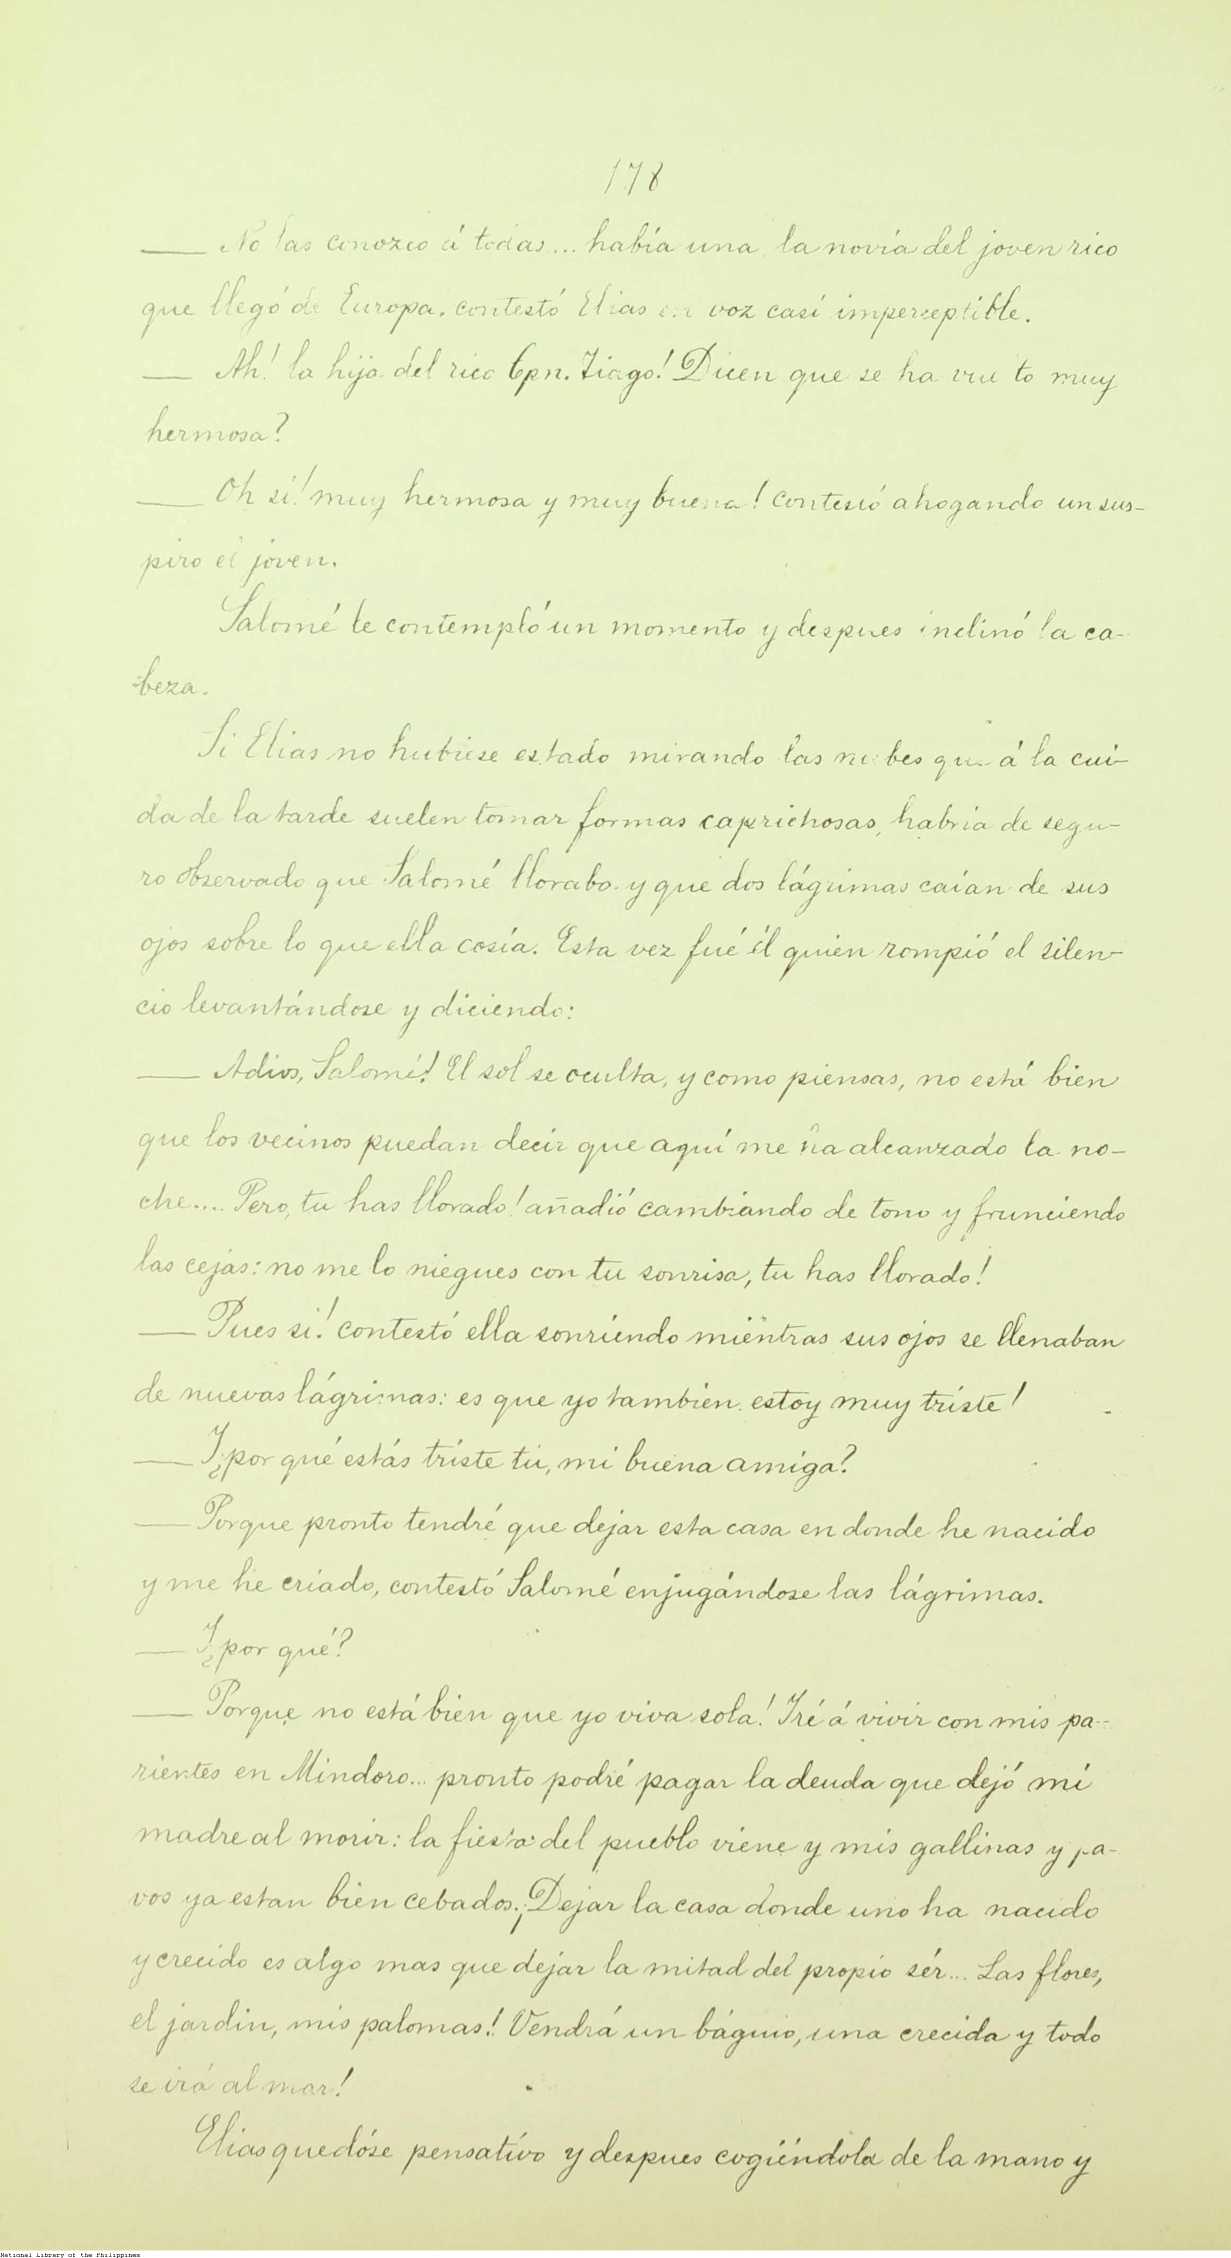 178
— No las conozco á todas... había una, la novia del joven rico
que llegó de Europa, contestó Elias en voz casi imperceptible.
— Ah! la hija del rico Cpn. Tiago! Dicen que se ha vuelto muy
hermosa?
— Oh sí! muy hermosa y muy buena! contestó ahogando un sus-
piro el joven.
Salomé le contempló un momento y despues inclinó la ca-
beza.
Si Elias no hubiese estado mirando las nubes que á la cai-
da de la tarde suelen tomar formas caprichosas, habria de segu-
ro observado que Salomé lloraba y que dos lágrimas caían de sus
ojos sobre lo que ella cosía. Esta vez fué él quien rompió el silen-
cio levantándose y diciendo:
— Adios, Salomé! El sol se oculta, y como piensas, no está bien
que los vecinos puedan decir que aquí me ha alcanzado la no-
che.... Pero, tu has llorado! añadió cambiando de tono y frunciendo
las cejas: no me lo niegues con tu sonrisa, tu has llorado!
— Pues si! contestó ella sonriendo mientras sus ojos se llenaban
de nuevas lágrimas: es que yo tambien estoy muy triste!
— I ¿por qué estás triste tú, mi buena amiga?
— Porque pronto tendré que dejar esta casa en donde he nacido
y me he criado, contestó Salomé enjugándose las lágrimas.
— I ¿por qué?
— Porque no está bien que yo viva sola! Iré á vivir con mis pa-
rientes en Mindoro... pronto podré pagar la deuda que dejó mi
madre al morir: la fiesta del pueblo viene y mis gallinas y pa-
vos ya estan bien cebados. ¡Dejar la casa donde uno ha nacido
y crecido es algo mas que dejar la mitad del propio sér... Las flores,
el jardin, mis palomas! Vendrá un báguio, una crecida y todo
se irá al mar!
Elias quedóse pensativo y despues cogiéndola de la mano y
National Library of the Philippines